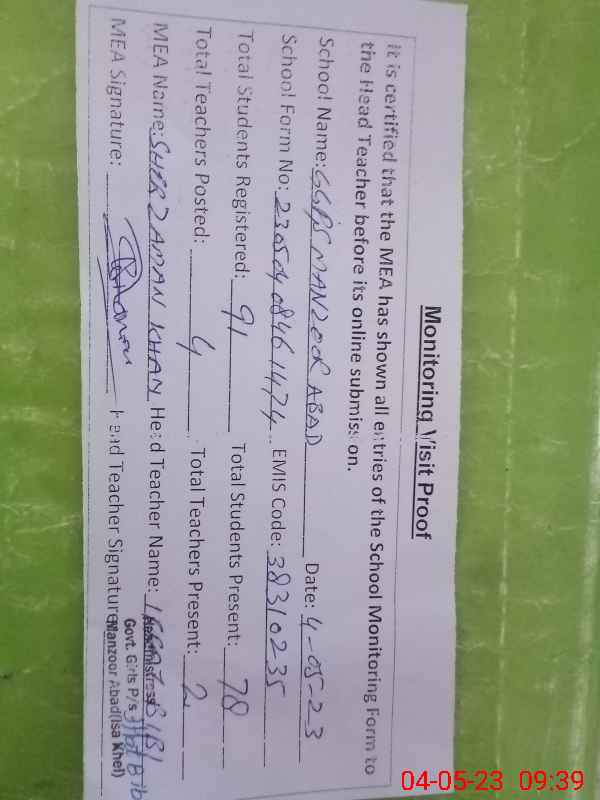 Monitoring Visit Proof
It is certified that the MEA has shown all entries of the School Monitoring Form to
the Head Teacher before its online submission.
School Name: GGPS MANZOOR ABAD Date: 4-05-23
School Form No: 23050408461474 EMIS Code: 38310235
Total Students Registered: 91 Total Students Present: 78
Total Teachers Posted: 4 Total Teachers Present: 2
MEA Name: SHER ZAMAN KHAN Head Teacher Name: BIBI
MEA Signature: Head Teacher Signature
Headmistress
Govt. Girls P/s
Manzoor Abad (Isa Khel)
04-05-23 09:39